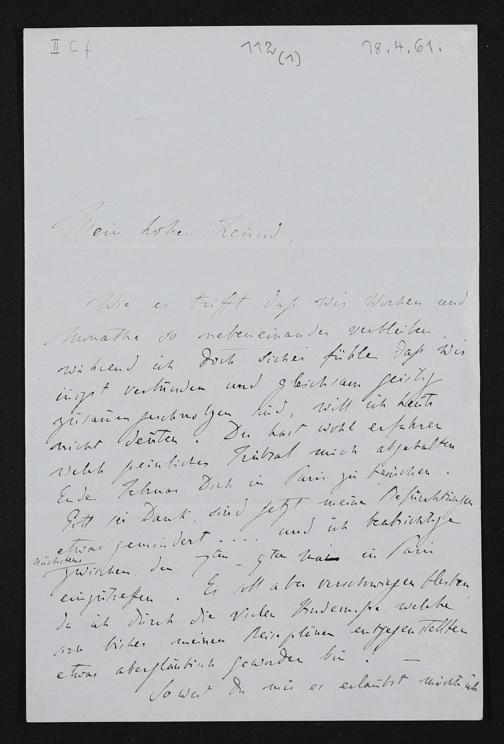 II C f 112 (1) 18.4.61.
Mein hoher Freund,
Wie es trifft daß wir Wochen und
Monathe so nebeneinander verbleiben
während ich doch sicher fühle daß wir
innigst verbunden und gleichsam geistig
zusammengeschmolzen sind, will ich heute
nicht deuten. Du hast wohl erfahren
welch peinliches Trübsal mich abgehalten
Ende Februar Dich in Paris zu besuchen.
Gott sei Dank sind jetzt meine Befürchtungen
etwas gemindert .... und ich beabsichtige
nächstens
zwischen den 7ten - 9ten Mai in Paris
einzutreffen. Es soll aber verschwiegen bleiben
da ich durch die vielen Hindernisse welche
sich bisher meinen Reiseplänen entgegenstellten
etwas abergläubisch geworden bin. —
So weit Du mir es erlaubst möchte ich